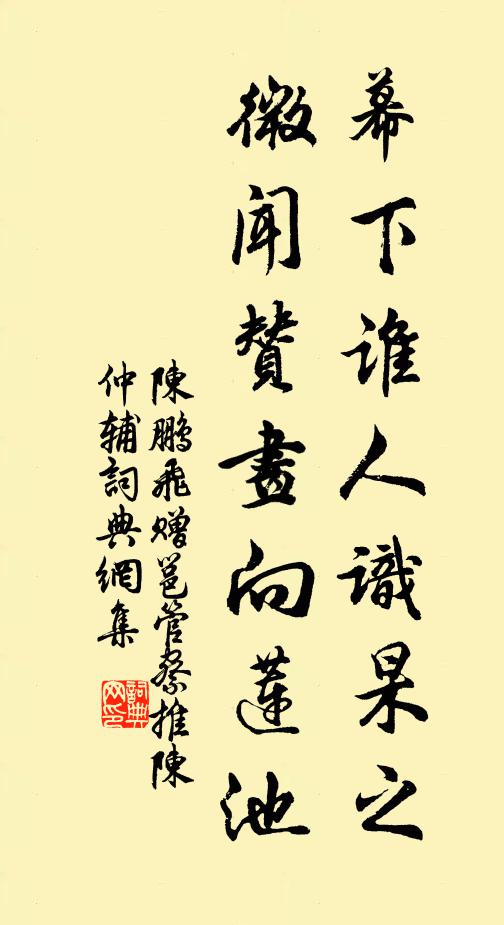 幕下誰人識杲之
微聞贊畫向蓮池
陳鵬飛贈邕管察推陳
仲辅詞典網集
詞典网印